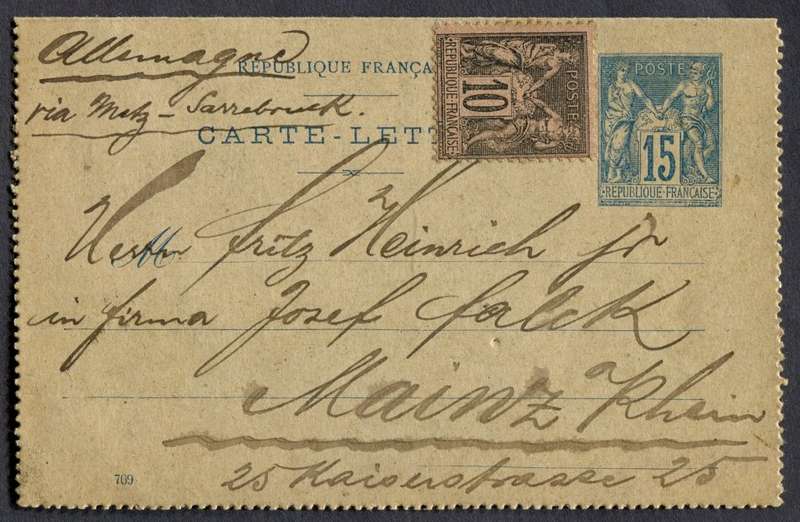 Allemagne
RÉPUBLIQUE FRANÇA
via Metz - Sarrebruck.
CARTE-LETT
RÉPUBLIQUE FRANÇAISE
10
POSTE
POSTE
15
RÉPUBLIQUE FRANÇAISE
M
Herrn Fritz Heinrich jr
in firma Josef Falck
Mainz a Rhein
25 Kaiserstrasse 25
709